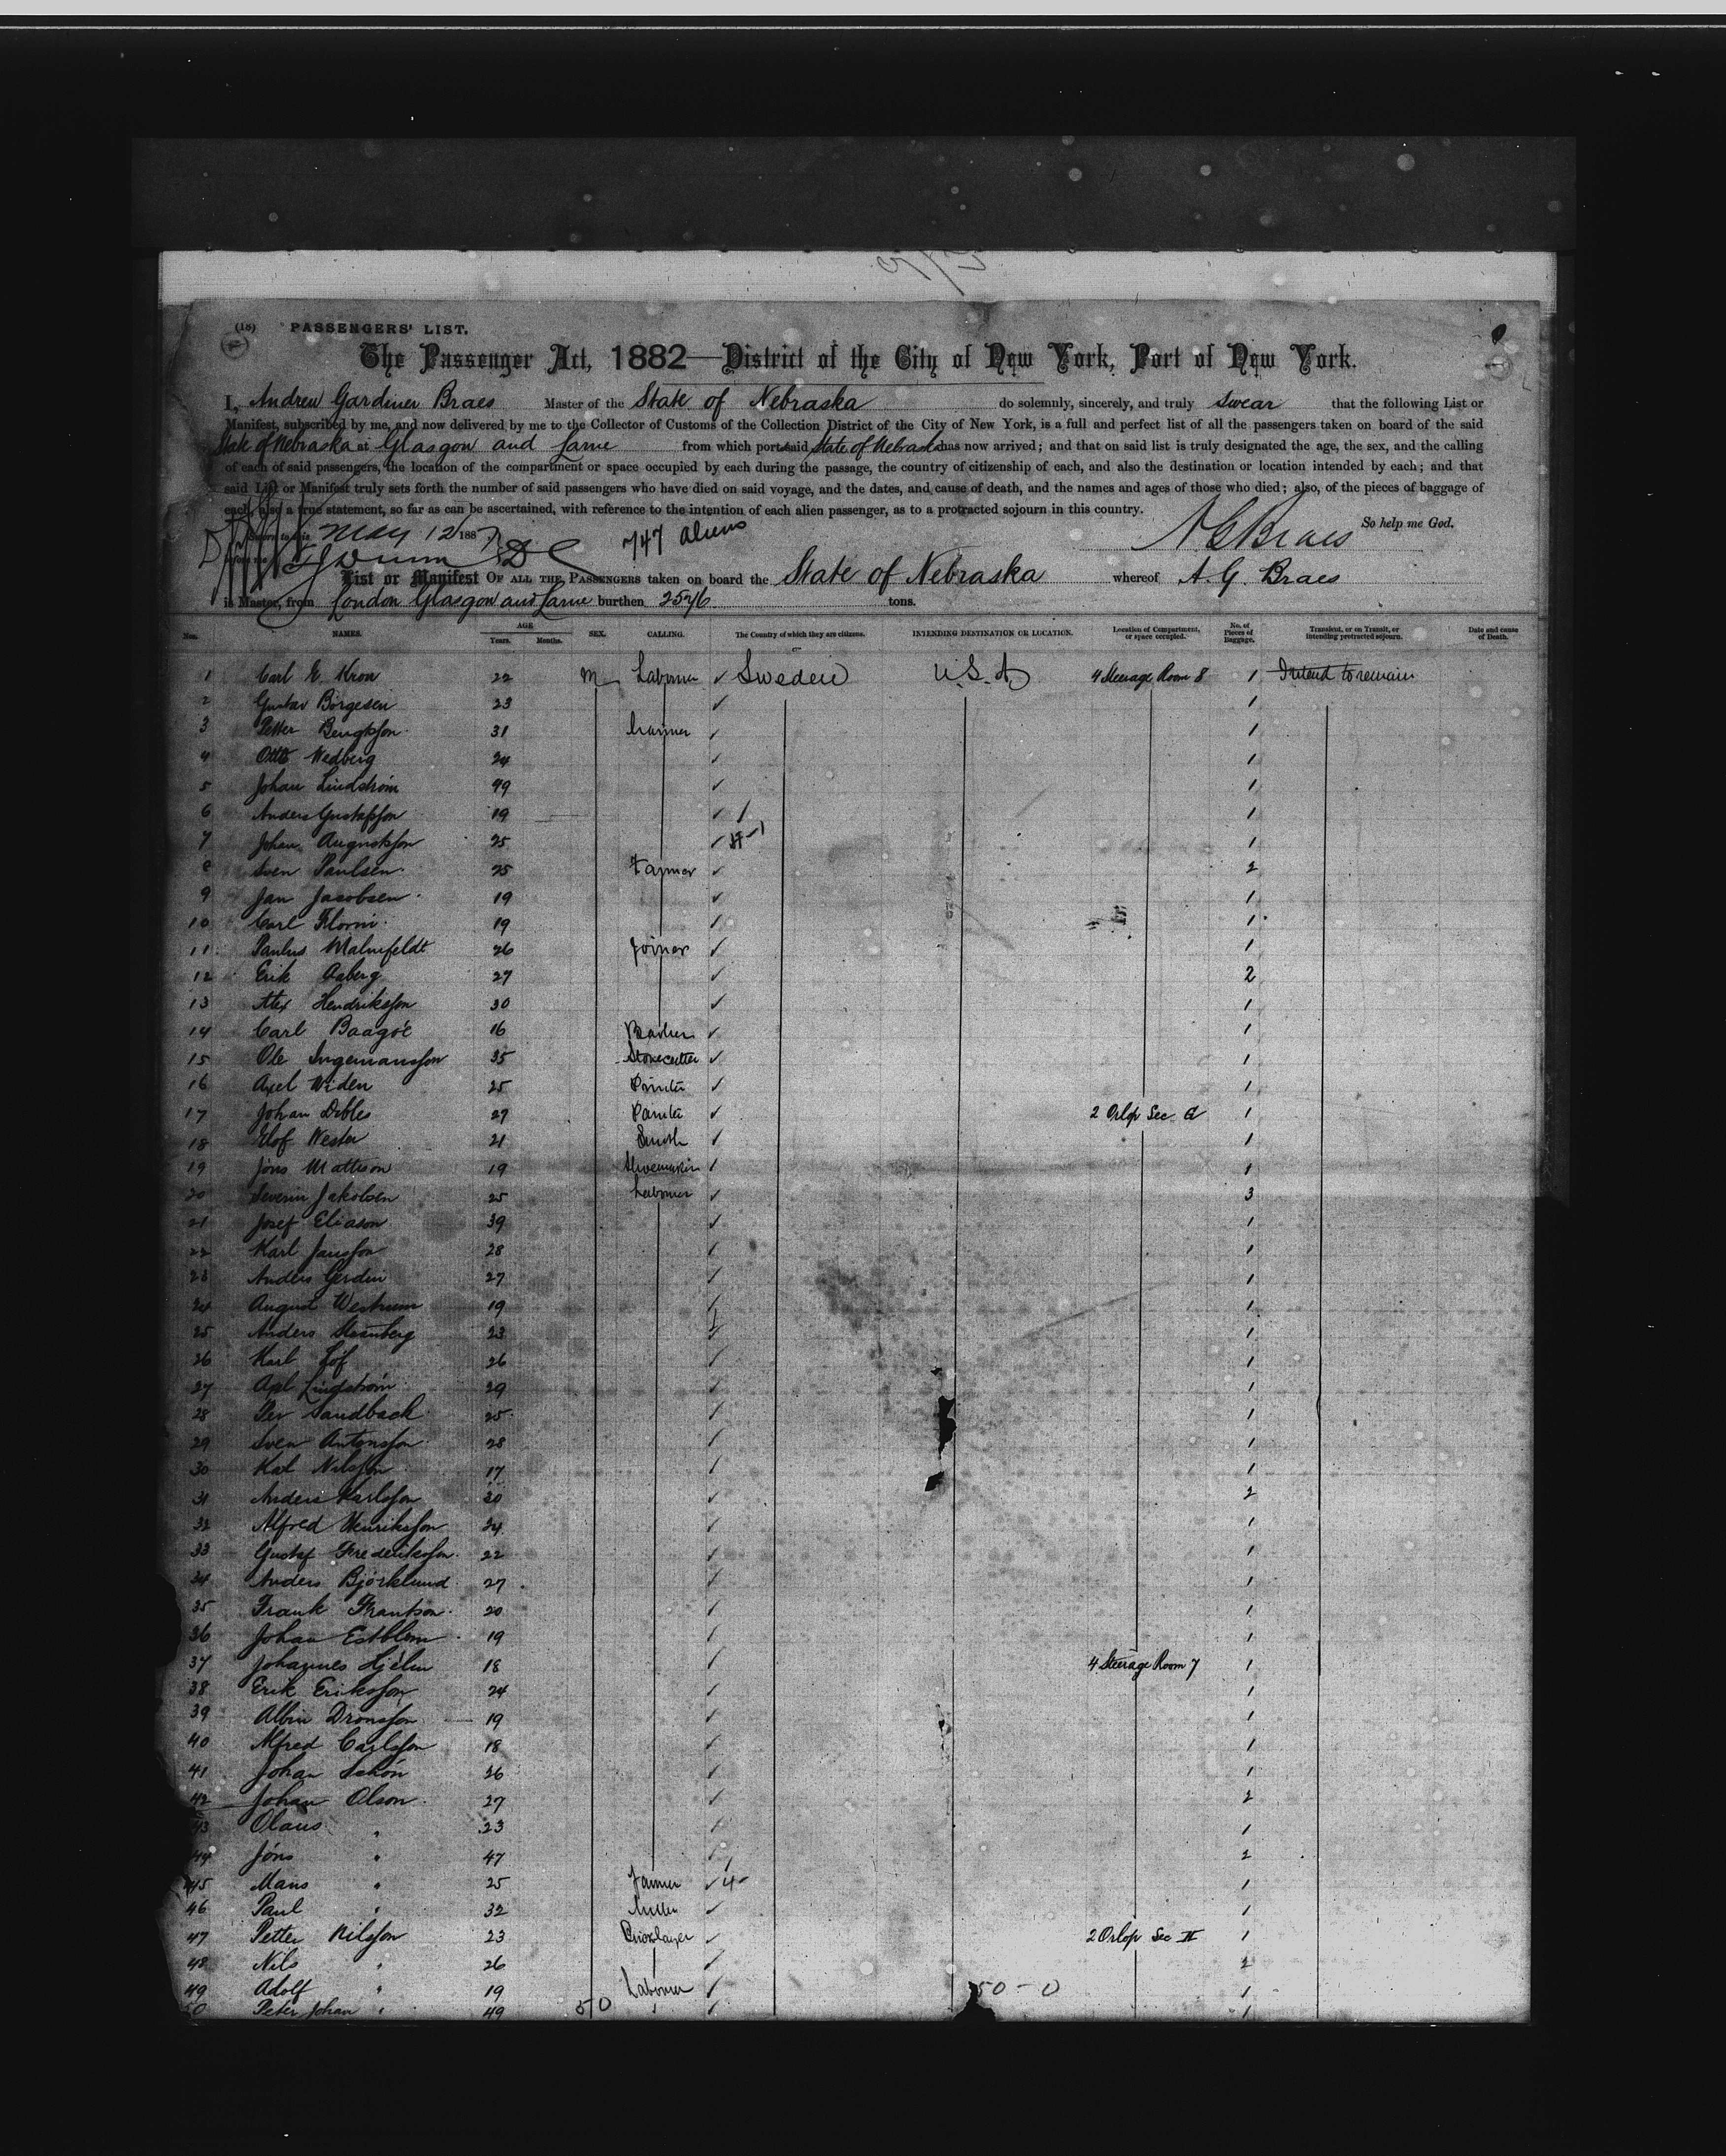 (18) PASSENGERS' LIST.
The Passenger Act, 1882—District of the City of New York, Port of New York.
I, Andrew Gardiner Braes Master of the State of Nebraska do solemnly, sincerely, and truly swear that the following List or
Manifest, subscribed by me, and now delivered by me to the Collector of Customs of the Collection District of the City of New York, is a full and perfect list of all the passengers taken on board of the said
State of Nebraska at Glasgow and Larne from which port said State of Nebraska has now arrived; and that on said list is truly designated the age, the sex, and the calling
of each of said passengers, the location of the compartment or space occupied by each during the passage, the country of citizenship of each, and also the destination or location intended by each; and that
said List or Manifest truly sets forth the number of said passengers who have died on said voyage, and the dates, and cause of death, and the names and ages of those who died; also, of the pieces of baggage of
each, also a true statement, so far as can be ascertained, with reference to the intention of each alien passenger, as to a protracted sojourn in this country.
So help me God.
Sworn to this May 12 1887 747 aliens A G Braes
before me
List or Manifest OF ALL THE PASSENGERS taken on board the State of Nebraska whereof A. G. Braes
is Master, from London Glasgow and Larne burthen 2576 tons.
Nos. NAMES. AGE Years. Months. SEX. CALLING. The Country of which they are citizens. INTENDING DESTINATION OR LOCATION. Location of Compartment, or space occupied. No. of Pieces of Baggage. Transient, or on Transit, or intending protracted sojourn. Date and cause of Death.
1 Carl E. Kron 22 m Labourer ✓ Sweden U.S.A 4 Steerage Room 8 1 Intend to remain
2 Gustav Börgesen 23 ✓ 1
3 Petter Bengtsson 31 ✓ 1
4 Otto Wedberg 24 ✓ 1
5 Johan Lindström 49 ✓ 1
6 Anders Gustafsson 19 ✓ 1
7 Johan Augustsson 25 ✓ 1
8 Sven Paulsen 25 Farmer ✓ 2
9 Jan Jacobsen 19 ✓ 1
10 Carl Florin 19 ✓ 1
11 Paulus Malmfeldt 26 Joiner ✓ 1
12 Erik Aaberg 27 ✓ 2
13 Alex Hendriksson 30 ✓ 1
14 Carl Baagöe 16 ✓ 1
15 Ole Ingemansson 35 Stonecutter ✓ 1
16 Axel Widen 25 Printer ✓ 1
17 Johan Dobles 27 Painter ✓ 2 Orlop Sec 1
18 Elof Wester 21 Smith ✓ 1
19 Jöns Mattison 19 Shoemaker ✓ 1
20 Severin Jakobsen 25 Labourer ✓ 3
21 Josef Eliason 39 ✓ 1
22 Karl Jansson 28 ✓ 1
23 Anders Gerdin 27 ✓ 1
24 August Westrum 19 ✓ 1
25 Anders Stenberg 23 ✓ 1
26 Karl Löf 26 ✓ 1
27 Axel Lindström 29 ✓ 1
28 Per Sandback 25 ✓ 1
29 Sven Antonsson 28 ✓ 1
30 Karl Nilsson 17 ✓ 1
31 Anders Karlsson 20 ✓ 2
32 Alfred Henriksson 24 ✓ 1
33 Gustaf Frederiksson 22 ✓ 1
34 Anders Björklund 27 ✓ 1
35 Frank Frantson 20 ✓ 1
36 Johan Estblom 19 ✓ 1
37 Johannes Hjelm 18 ✓ 4 Steerage Room 7 1
38 Erik Eriksson 24 ✓ 1
39 Albin Dronsson 19 ✓ 1
40 Alfred Carlsson 18 ✓ 1
41 Johan Schön 26 ✓ 1
42 Johan Olson 27 ✓ 2
43 Olaus " 23 ✓ 1
44 Jöns " 47 ✓ 2
45 Mans " 25 Farmer ✓ 4 1
46 Paul " 32 Miller ✓ 1
47 Petter Nilsson 23 Bricklayer ✓ 2 Orlop Sec II 1
48 Nils " 26 ✓ 2
49 Adolf " 19 Labourer ✓ 1
50 Peter Johan " 49 50 ✓ 50 - 0 1